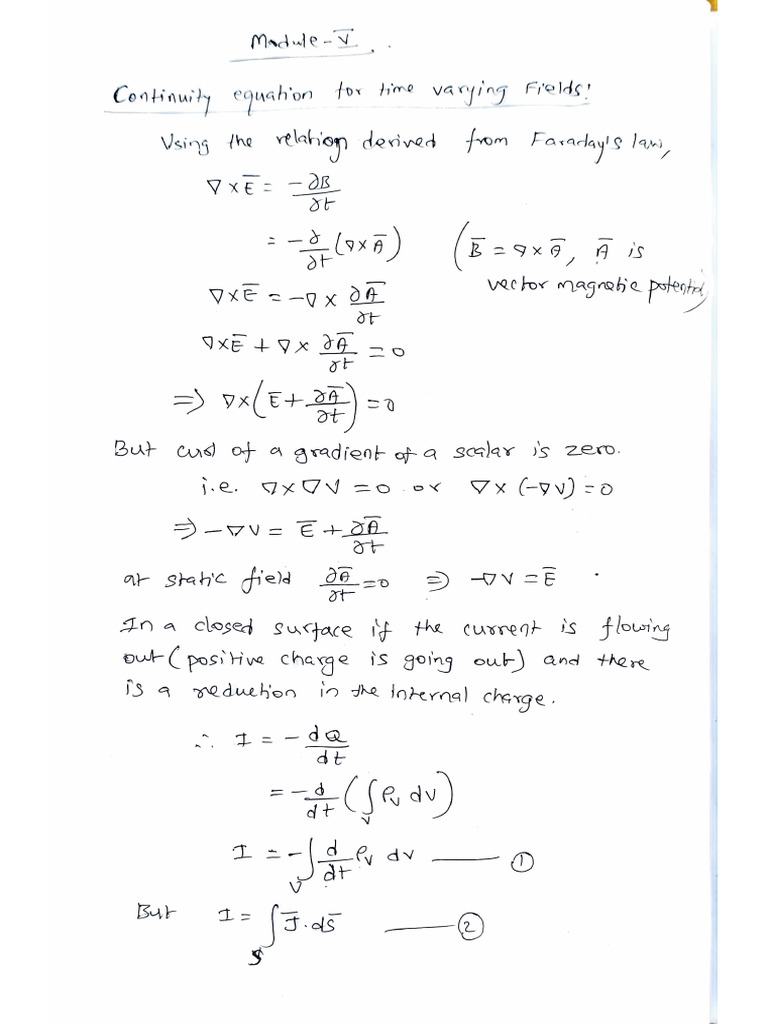 Module-V
Continuity equation for time varying Fields:
Using the relation derived from Faraday's law,
∇ × E̅ = -∂B/∂t
= -∂/∂t (∇ × A̅) (B̅ = ∇ × A̅, A̅ is
vector magnetic potential)
∇×E̅ = -∇ × ∂A̅/∂t
∇×E̅ + ∇ × ∂A̅/∂t = 0
⇒ ∇×(E̅ + ∂A̅/∂t) = 0
But curl of a gradient of a scalar is zero.
i.e. ∇×∇V = 0 or ∇ × (-∇V) = 0
⇒ -∇V = E̅ + ∂A̅/∂t
at static field ∂A̅/∂t = 0 ⇒ -∇V = E̅
In a closed surface if the current is flowing
out (positive charge is going out) and there
is a reduction in the internal charge.
∴ I = -dQ/dt
= -d/dt (∫v ρv dv)
I = -∫v d/dt ρv dv —— ①
But I = ∫s J̅.ds̅ —— ②